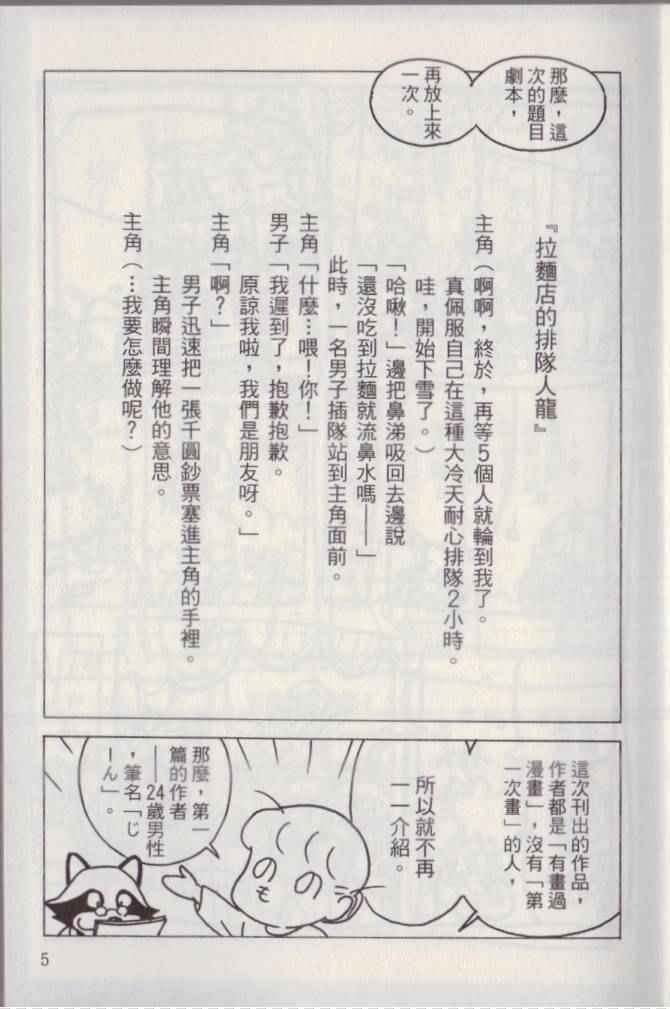 那麼，這
次的題目
劇本，
再放上來
一次。
『拉麵店的排隊人龍』
主角（啊啊，終於，再等5個人就輪到我了。
真佩服自己在這種大冷天耐心排隊2小時。
哇，開始下雪了。）
「哈啾！」邊把鼻涕吸回去邊說
「還沒吃到拉麵就流鼻水嗎——」
此時，一名男子插隊站到主角面前。
主角「什麼…喂！你！」
男子「我遲到了，抱歉抱歉。
原諒我啦，我們是朋友呀。」
主角「啊？」
男子迅速把一張千圓鈔票塞進主角的手裡。
主角瞬間理解他的意思。
主角（…我要怎麼做呢？）
這次刊出的作品，
作者都是「有畫過
漫畫」，沒有「第
一次畫」的人，
所以就不再
一一介紹。
那麼，第一
篇的作者
——24歲男性
，筆名「じ
ーん」。
5